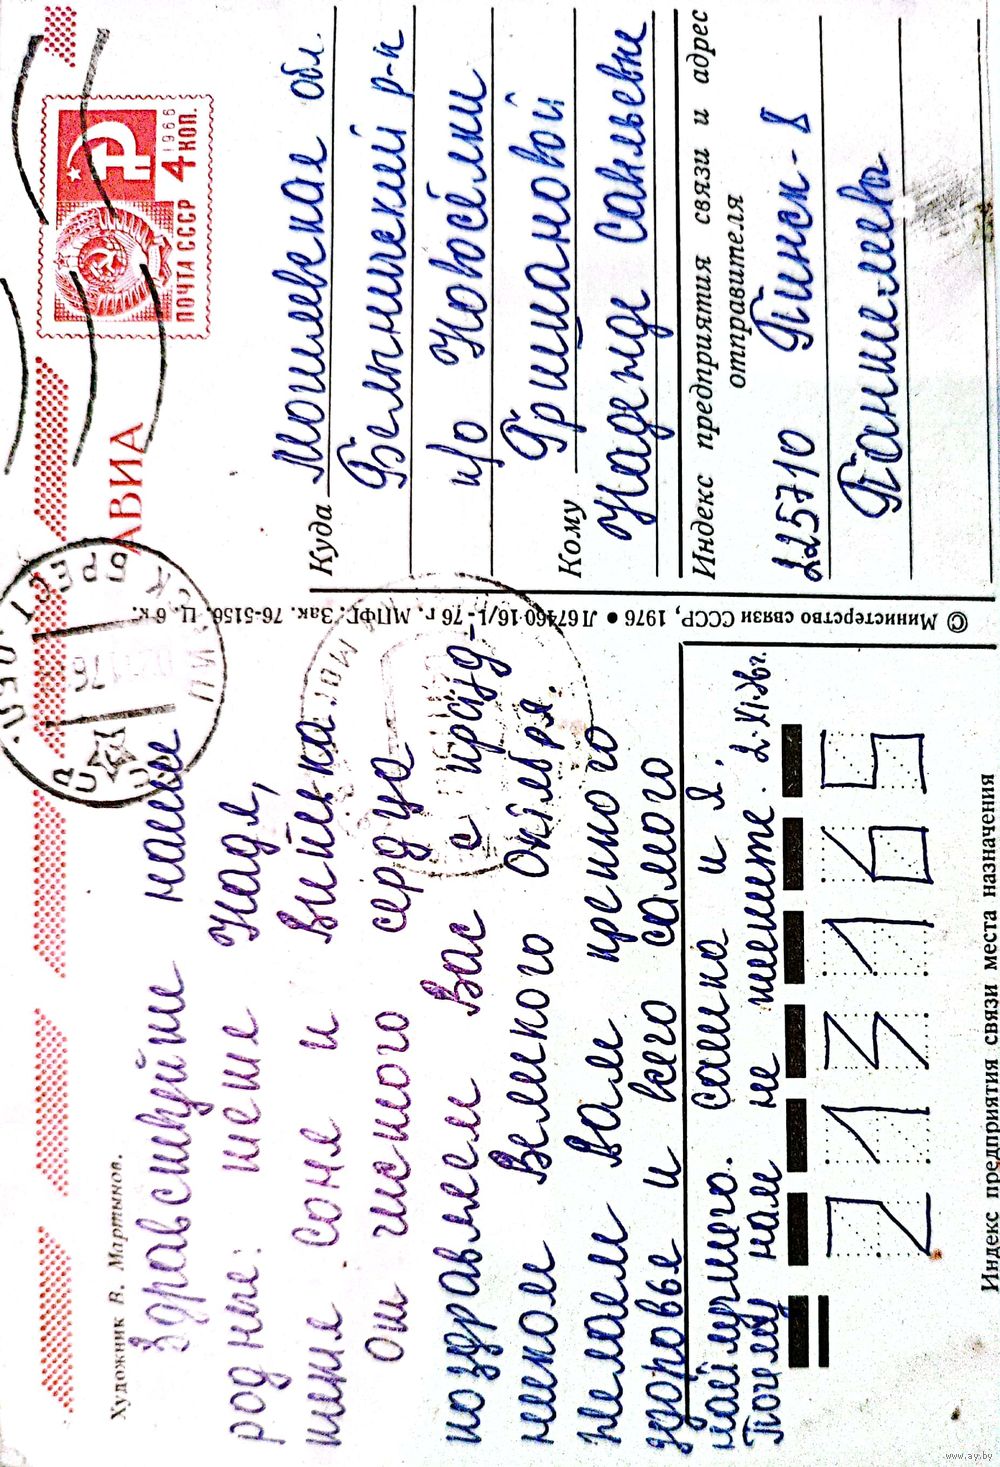 Художник В. Мартынов.
Здравствуйте наши
родные: тётя Надя,
тётя Соня и Витька.
От чистого сердца
поздравляем Вас с празд-
ником Великого Октября.
Желаем Вам крепкого
здоровья и всего самого
наилучшего. Сашка и Я.
Почему нам не пишете. 2.XI.76г.
213165
Индекс предприятия связи места назначения
© Министерство связи СССР, 1976 • Л 67460·16/I-76 г. МПФГ. Зак. 76-5156. Ц. 6 к.
АВИА
1966
4 КОП.
ПОЧТА СССР
ПИНСК БРЕСТ
Куда Могилевская обл.
Белыничский р-н
п/о Новосёлки
Кому Гришановой
Надежде Савельевне
Индекс предприятия связи и адрес
отправителя
225710 Пинск-8
www.ay.by